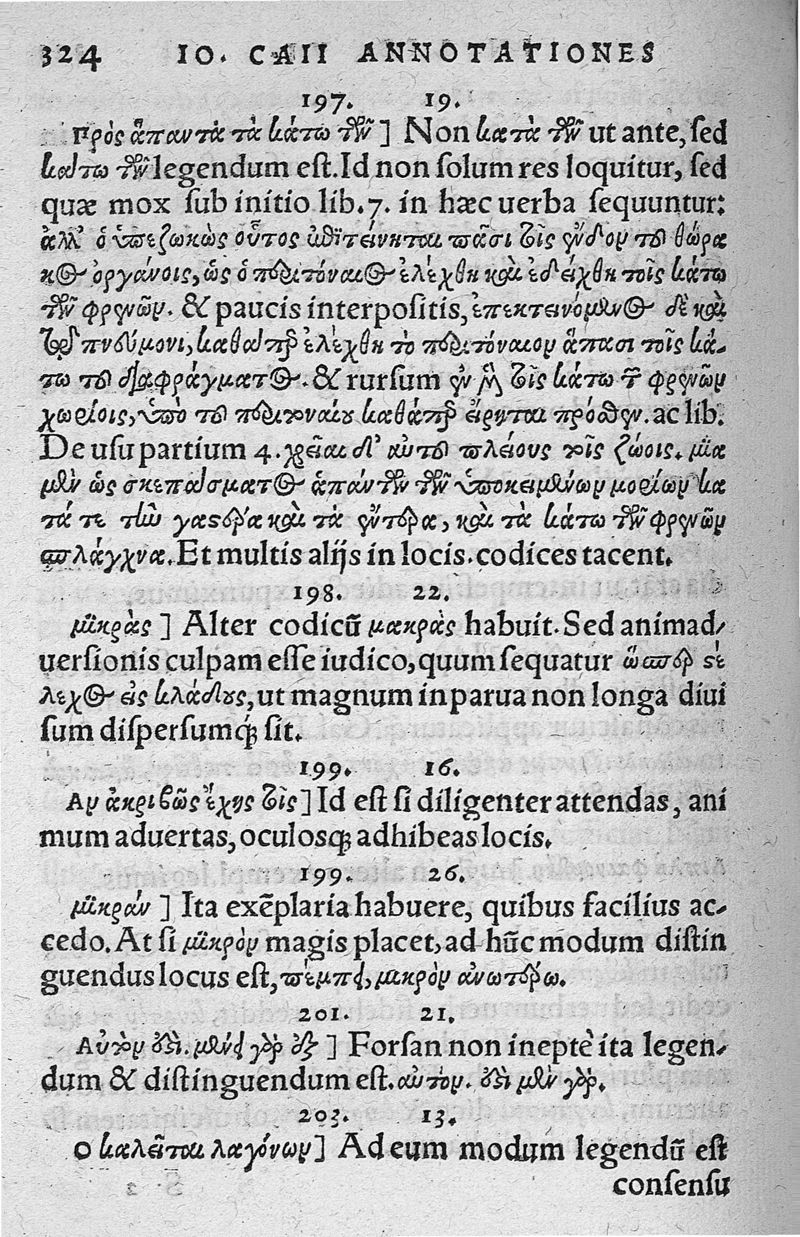 324 IO. CAII ANNOTATIONES
197. 19.
Πρὸς ἅπαντα τὰ κάτω τῶν] Non κατὰ τῶν ut ante, sed
κάτω τῶν legendum est. Id non solum res loquitur, sed
quæ mox sub initio lib. 7. in hæc uerba sequuntur:
ἀλλ' ὁ ὑπεζωκὼς οὗτος τοῖς ἔνδον τοῦ θώρα
κος ὀργάνοις, ὡς ὁ περιτόναιος ἐλέχθη καὶ ἐδείχθη τοῖς κάτω
τῶν φρενῶν. & paucis interpositis, ἐπεκτεινόμενος δὲ καὶ
τῷ πνεύμονι, καθάπερ ἐλέχθη τὸ περιτόναιον ἅπασι τοῖς κά-
τω τοῦ διαφράγματος. & rursum ἐν μὲν τοῖς κάτω τῶν φρενῶν
χωρίοις, ὑπὸ τοῦ περιτοναίου καθάπερ εἴρηται πρόσθεν. ac lib.
De usu partium 4. χρεῖαι δ' αὐτοῦ πλείους τοῖς ζώοις. μία
μὲν ὡς σκεπάσματος ἁπάντων τῶν ὑποκειμένων μορίων κα
τά τε τὴν γαστέρα καὶ τὰ ἔντερα, καὶ τὰ κάτω τῶν φρενῶν
σπλάγχνα. Et multis alijs in locis. codices tacent.
198. 22.
μικρὰς] Alter codicũ μακρὰς habuit. Sed animad/
uersionis culpam esse iudico, quum sequatur ὥσπερ στέ
λεχος εἰς κλάδους, ut magnum in parua non longa diui
sum dispersumq; sit.
199. 16.
Αν ἀκριβῶς ἔχης τοῖς] Id est si diligenter attendas, ani
mum aduertas, oculosq; adhibeas locis.
199. 26.
μικρὰν] Ita exẽplaria habuere, quibus facilius ac-
cedo. At si μικρὸν magis placet, ad hũc modum distin
guendus locus est, πέμπει, μικρὸν ἀνωτέρω.
201. 21.
Αὐτὸν ἐπὶ. μὲν γὰρ] Forsan non ineptè ita legen/
dum & distinguendum est. αὐτὸν. ἐπὶ μὲν γὰρ.
203. 13.
Ο καλεῖται λαγόνων] Ad eum modum legendũ est
consensu